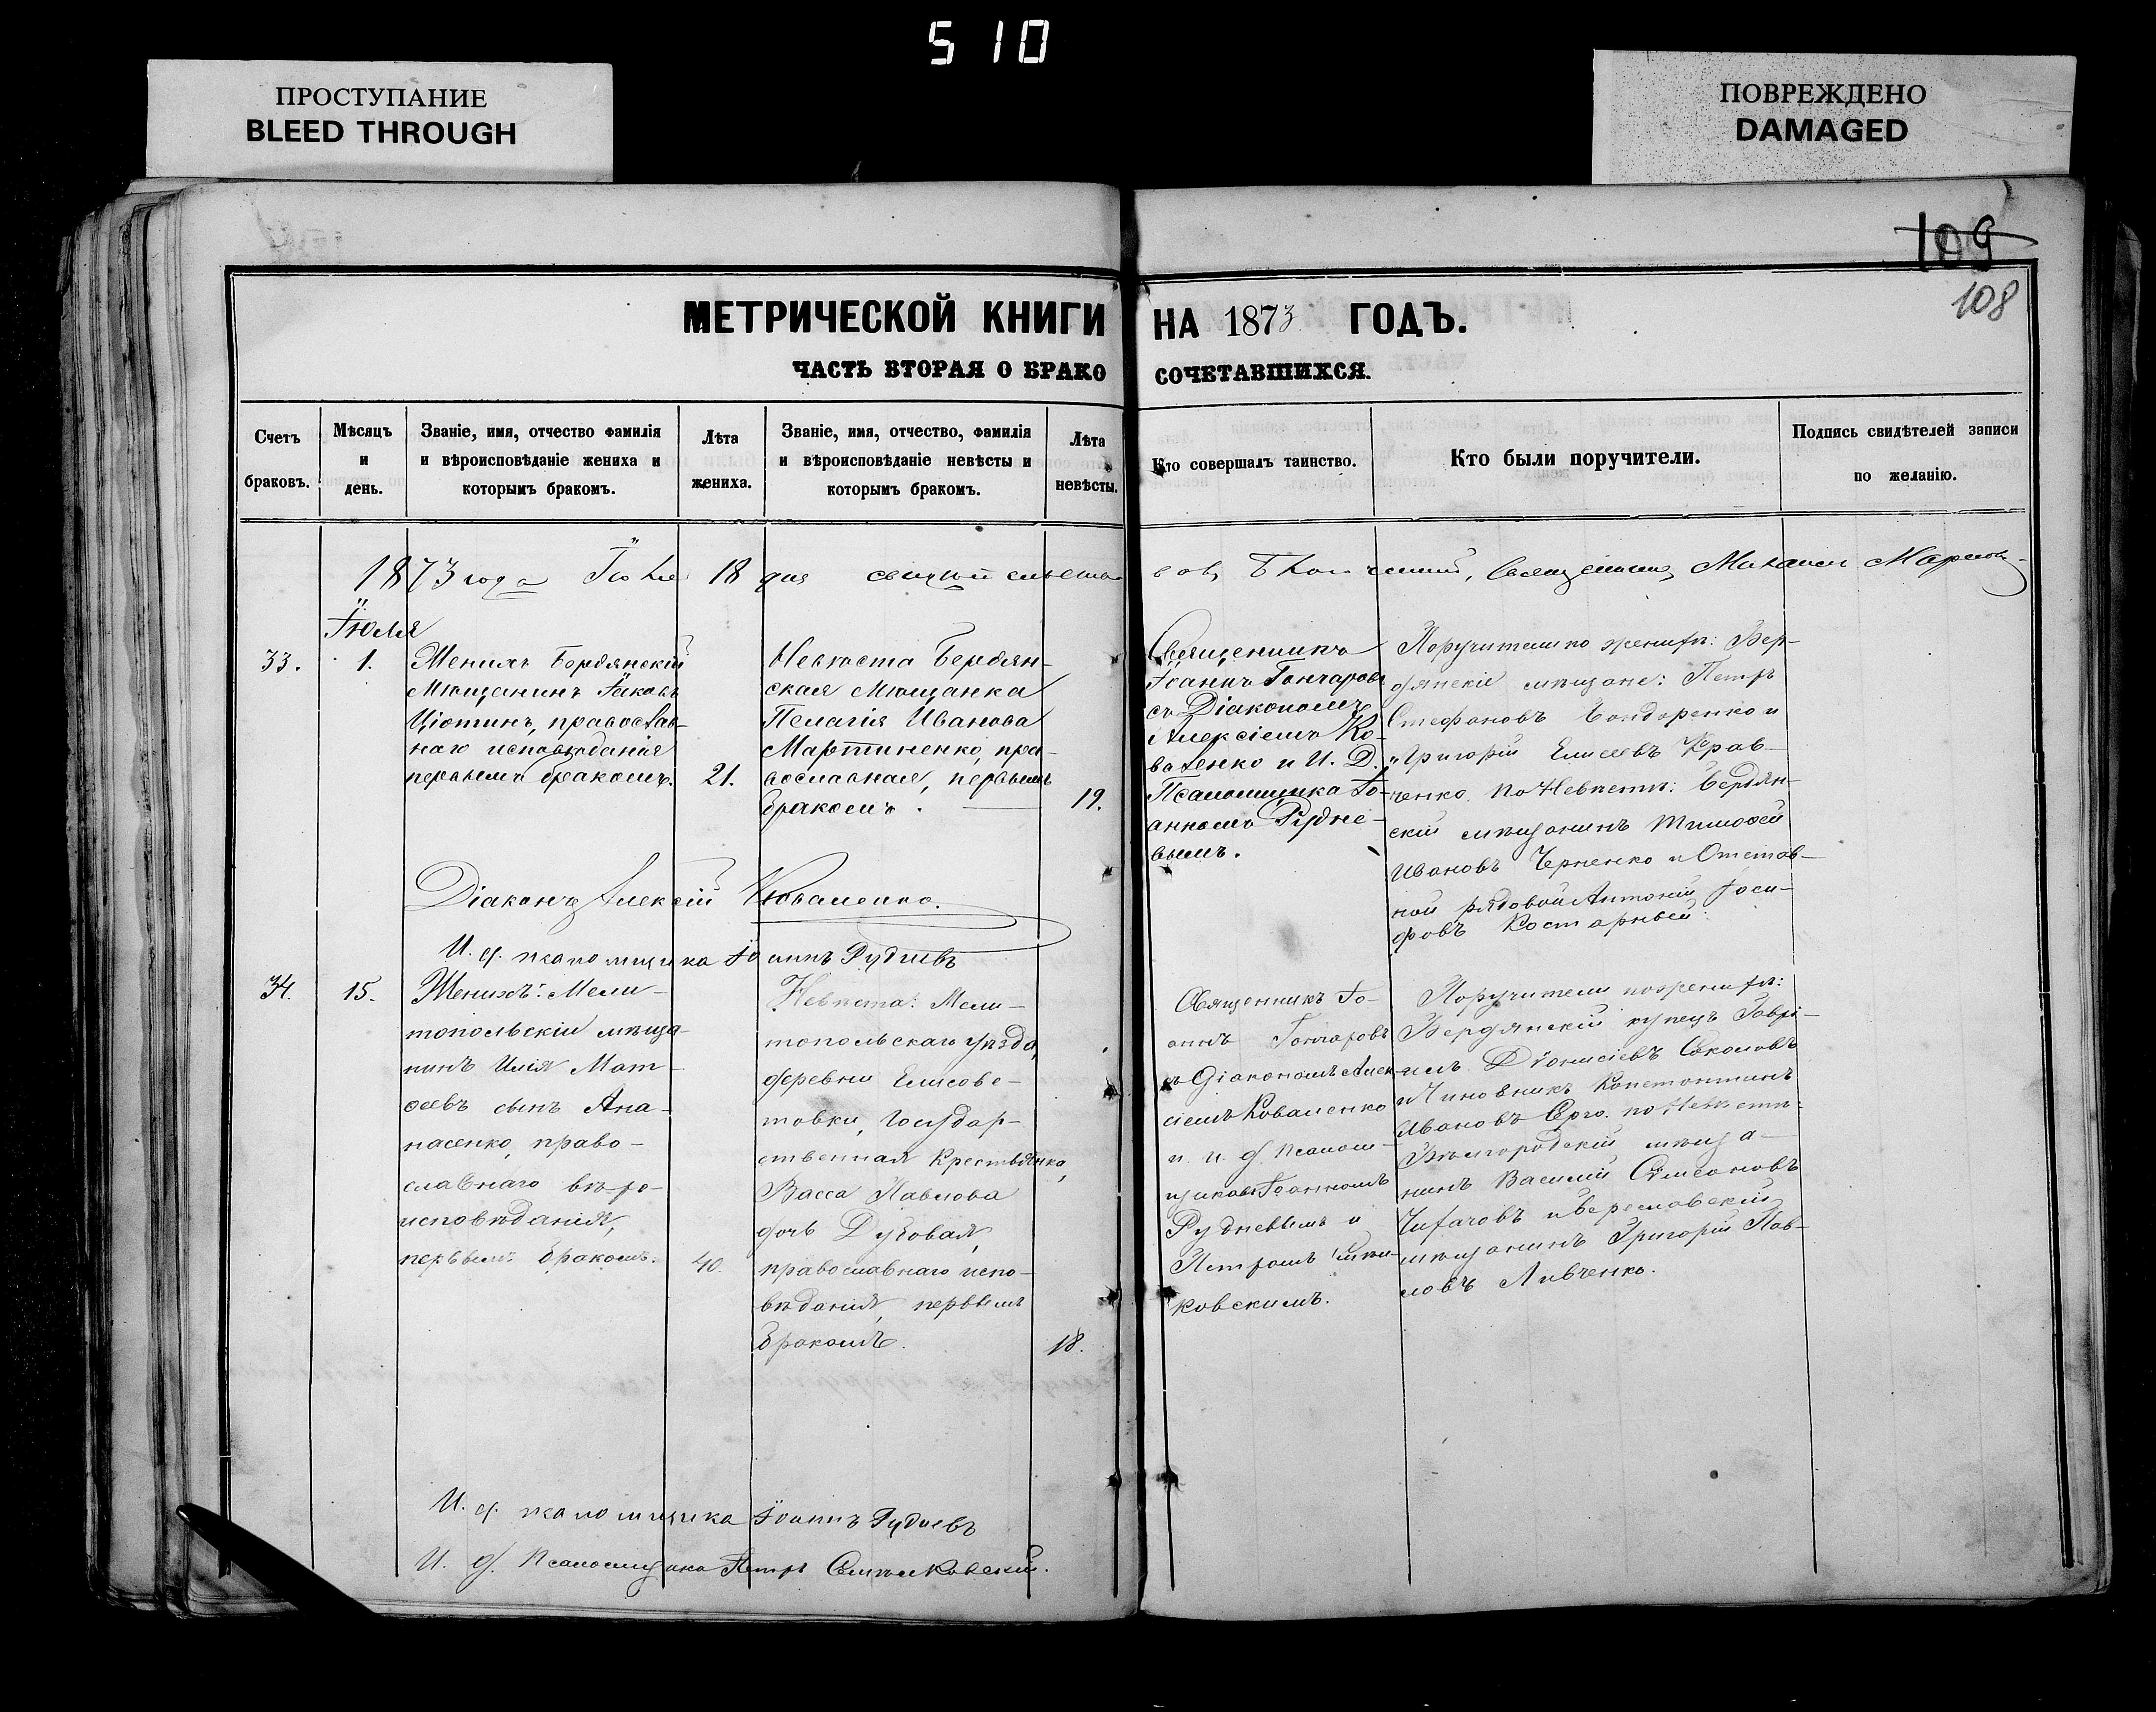 510
ПРОСТУПАНИЕ
BLEED THROUGH
ПОВРЕЖДЕНО
DAMAGED
109
108
МЕТРИЧЕСКОЙ КНИГИ НА 1873 ГОДЪ.
ЧАСТЬ ВТОРАЯ О БРАКОСОЧЕТАВШИХСЯ.
Счетъ
браковъ.
Мѣсяцъ
и
день.
Званіе, имя, отчество фамилія
и вѣроисповѣданіе жениха и
которымъ бракомъ.
Лѣта
жениха.
Званіе, имя, отчество, фамилія
и вѣроисповѣданіе невѣсты и
которымъ бракомъ.
Лѣта
невѣсты.
Кто совершалъ таинство.
Кто были поручители.
Подпись свидѣтелей записи
по желанію.
1873 года 18 дня Михаилъ
Іюля
33.
1.
Женихъ Бердянскій
Мѣщанинъ Іаковъ
Ціотинъ, православ-
наго исповѣданія
первымъ бракомъ.
21.
Невѣста Бердян-
ская Мѣщанка
Пелагія Иванова
Мартиненко, пра-
вославная, первымъ
бракомъ.
19.
Священникъ
Іоаннъ Гончаровъ
съ Діакономъ
Алексіемъ Ко-
валенко и И. Д.
Псаломщика Іо-
анномъ Рудне-
вымъ.
Поручители по женихѣ: Бер-
дянскіе мѣщане: Петръ
Стефановъ Бондаренко и
Григорій Елисеевъ Крав-
ченко. По Невѣстѣ: Бердян-
скій мѣщанинъ Тимофей
Ивановъ Черненко и Отстав-
ной рядовой Антоній Іоси-
фовъ Костарный.
Діаконъ Алексій Коваленко.
И. д. псаломщика Іоаннъ Рудневъ
34.
15.
Женихъ: Мели-
топольскій мѣща-
нинъ Илія Мат-
ѳеевъ сынъ Апа-
насенко, право-
славнаго вѣро-
исповѣданія,
первымъ бракомъ.
40.
Невѣста: Мели-
топольскаго уѣзда,
деревни Елисове-
товки, Государ-
ственная Крестьянка,
Васса Павлова
дочь Духовая,
православнаго испо-
вѣданія, первымъ
бракомъ.
18.
Священникъ Іо-
аннъ Гончаровъ
съ Діакономъ Алек-
сіемъ Коваленко
и и. д. Псалом-
щиковъ Іоанномъ
Рудневымъ и
Петромъ
ковскимъ.
Поручители по женихѣ:
Бердянскій купецъ Гаврі-
илъ Діонисіевъ Соколовъ
и Чиновникъ Константинъ
Ивановъ по Невѣстѣ:
Бѣлгородскій мѣща-
нинъ Василій Симеоновъ
Чихачовъ и
мѣщанинъ Григорій Пав-
ловъ Ливченко.
И. д. псаломщика Іоаннъ Рудневъ
И. д. Псаломщика Петръ